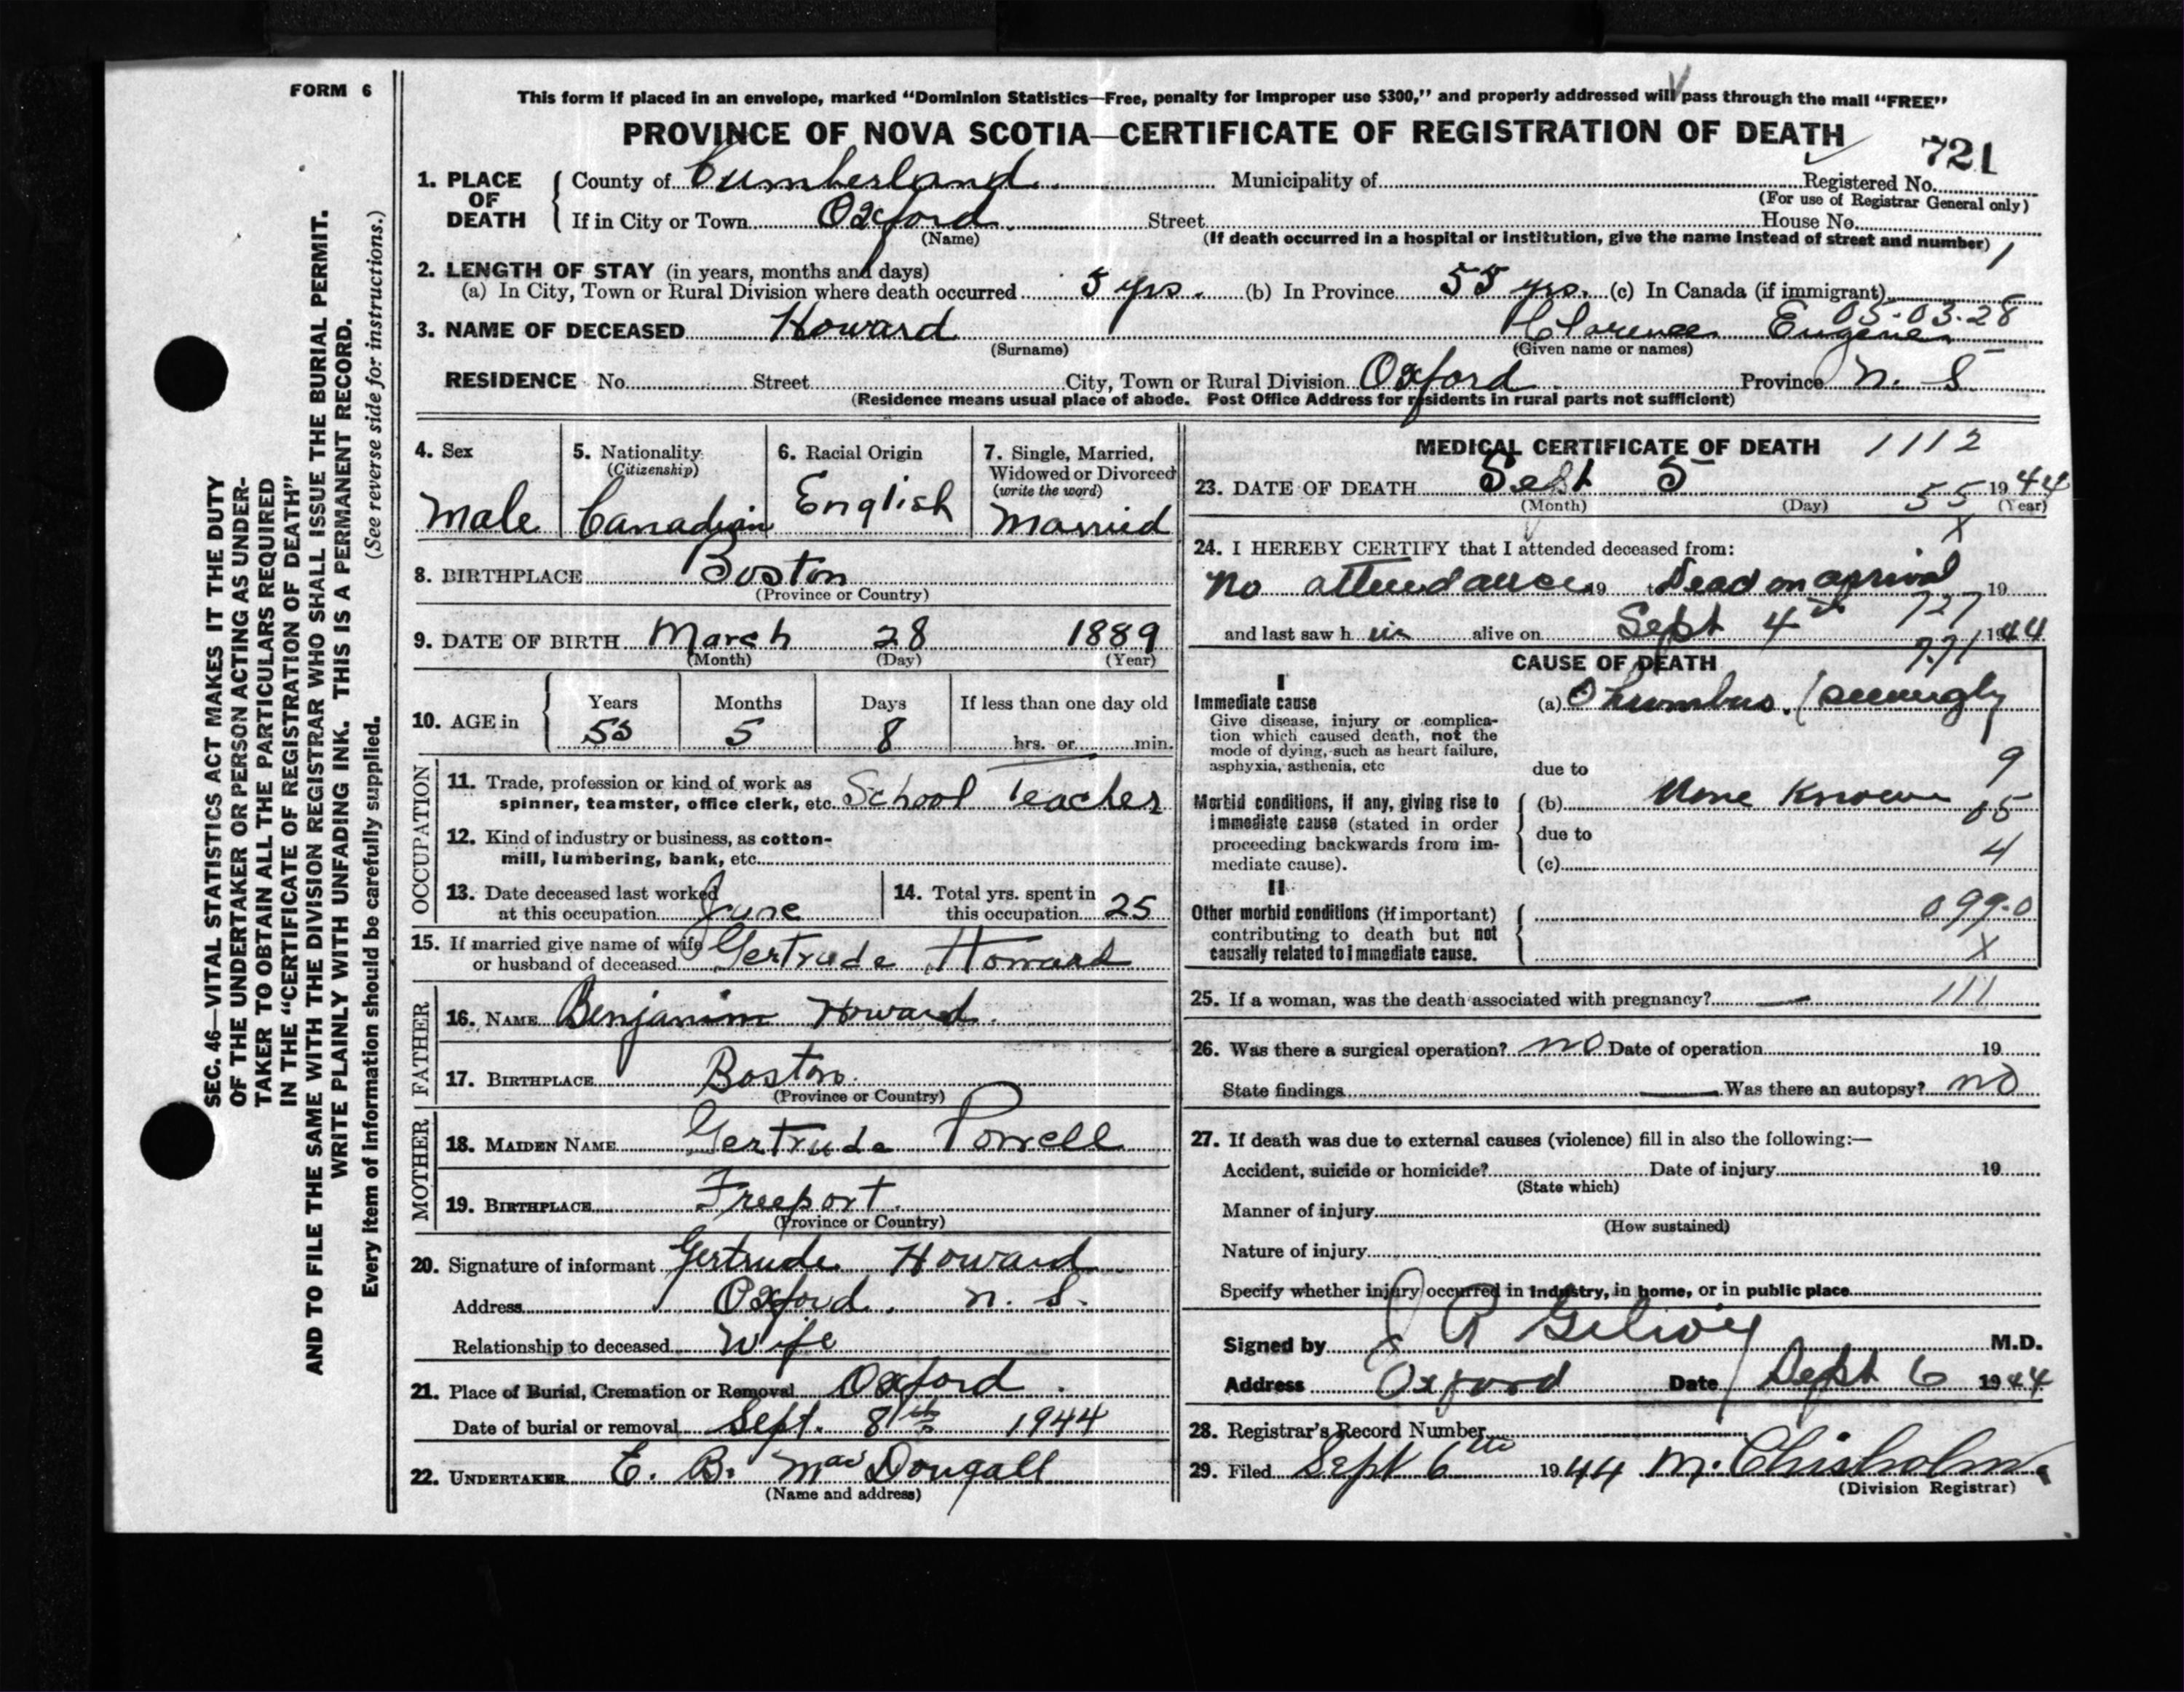 FORM 6
This form if placed in an envelope, marked "Dominion Statistics—Free, penalty for improper use $300," and properly addressed will pass through the mail "FREE"
PROVINCE OF NOVA SCOTIA—CERTIFICATE OF REGISTRATION OF DEATH
721
1. PLACE OF DEATH County of Cumberland Municipality of Registered No.
(For use of Registrar General only)
If in City or Town Oxford Street House No.
(Name) (If death occurred in a hospital or institution, give the name instead of street and number) 1
2. LENGTH OF STAY (in years, months and days)
(a) In City, Town or Rural Division where death occurred 5 yrs. (b) In Province 55 yrs. (c) In Canada (if immigrant)
05-03-28
3. NAME OF DECEASED Howard Clarence Eugene
(Surname) (Given name or names)
RESIDENCE No. Street City, Town or Rural Division Oxford Province N. S.
(Residence means usual place of abode. Post Office Address for residents in rural parts not sufficient)
4. Sex 5. Nationality (Citizenship) 6. Racial Origin 7. Single, Married, Widowed or Divorced (write the word)
Male Canadian English Married
8. BIRTHPLACE Boston
(Province or Country)
9. DATE OF BIRTH March 28 1889
(Month) (Day) (Year)
10. AGE in Years Months Days If less than one day old
55 5 8 hrs. or min.
OCCUPATION
11. Trade, profession or kind of work as
spinner, teamster, office clerk, etc. School Teacher
12. Kind of industry or business, as cotton-
mill, lumbering, bank, etc.
13. Date deceased last worked
at this occupation June
14. Total yrs. spent in
this occupation 25
15. If married give name of wife
or husband of deceased Gertrude Howard
FATHER
16. NAME Benjamin Howard
17. BIRTHPLACE Boston
(Province or Country)
MOTHER
18. MAIDEN NAME Gertrude Powell
19. BIRTHPLACE Freeport
(Province or Country)
20. Signature of informant Gertrude Howard
Address Oxford. N. S.
Relationship to deceased Wife
21. Place of Burial, Cremation or Removal Oxford
Date of burial or removal Sept. 8th 1944
22. UNDERTAKER E. B. MacDougall
(Name and address)
MEDICAL CERTIFICATE OF DEATH 1112
23. DATE OF DEATH Sept 5 1944
(Month) (Day) 55 (Year)
X
24. I HEREBY CERTIFY that I attended deceased from:
No attendance 19 to Dead on arrival 19
727
and last saw h im alive on Sept 4th 1944
771
CAUSE OF DEATH
I
Immediate cause
Give disease, injury or complica-
tion which caused death, not the
mode of dying, such as heart failure,
asphyxia, asthenia, etc
(a) seemingly
due to 9
Morbid conditions, if any, giving rise to
immediate cause (stated in order
proceeding backwards from im-
mediate cause).
(b) None Known 05
due to
(c) 4
II
Other morbid conditions (if important)
contributing to death but not
causally related to immediate cause.
099.0
X
25. If a woman, was the death associated with pregnancy? — 111
26. Was there a surgical operation? no Date of operation 19
State findings Was there an autopsy? no
27. If death was due to external causes (violence) fill in also the following:—
Accident, suicide or homicide? Date of injury 19
(State which)
Manner of injury
(How sustained)
Nature of injury
Specify whether injury occurred in industry, in home, or in public place
Signed by M.D.
Address Oxford Date Sept 6 1944
28. Registrar's Record Number
29. Filed Sept 6th 1944 M. Chisholm
(Division Registrar)
SEC. 46—VITAL STATISTICS ACT MAKES IT THE DUTY
OF THE UNDERTAKER OR PERSON ACTING AS UNDER-
TAKER TO OBTAIN ALL THE PARTICULARS REQUIRED
IN THE "CERTIFICATE OF REGISTRATION OF DEATH"
AND TO FILE THE SAME WITH THE DIVISION REGISTRAR WHO SHALL ISSUE THE BURIAL PERMIT.
WRITE PLAINLY WITH UNFADING INK. THIS IS A PERMANENT RECORD.
Every item of information should be carefully supplied. (See reverse side for instructions.)